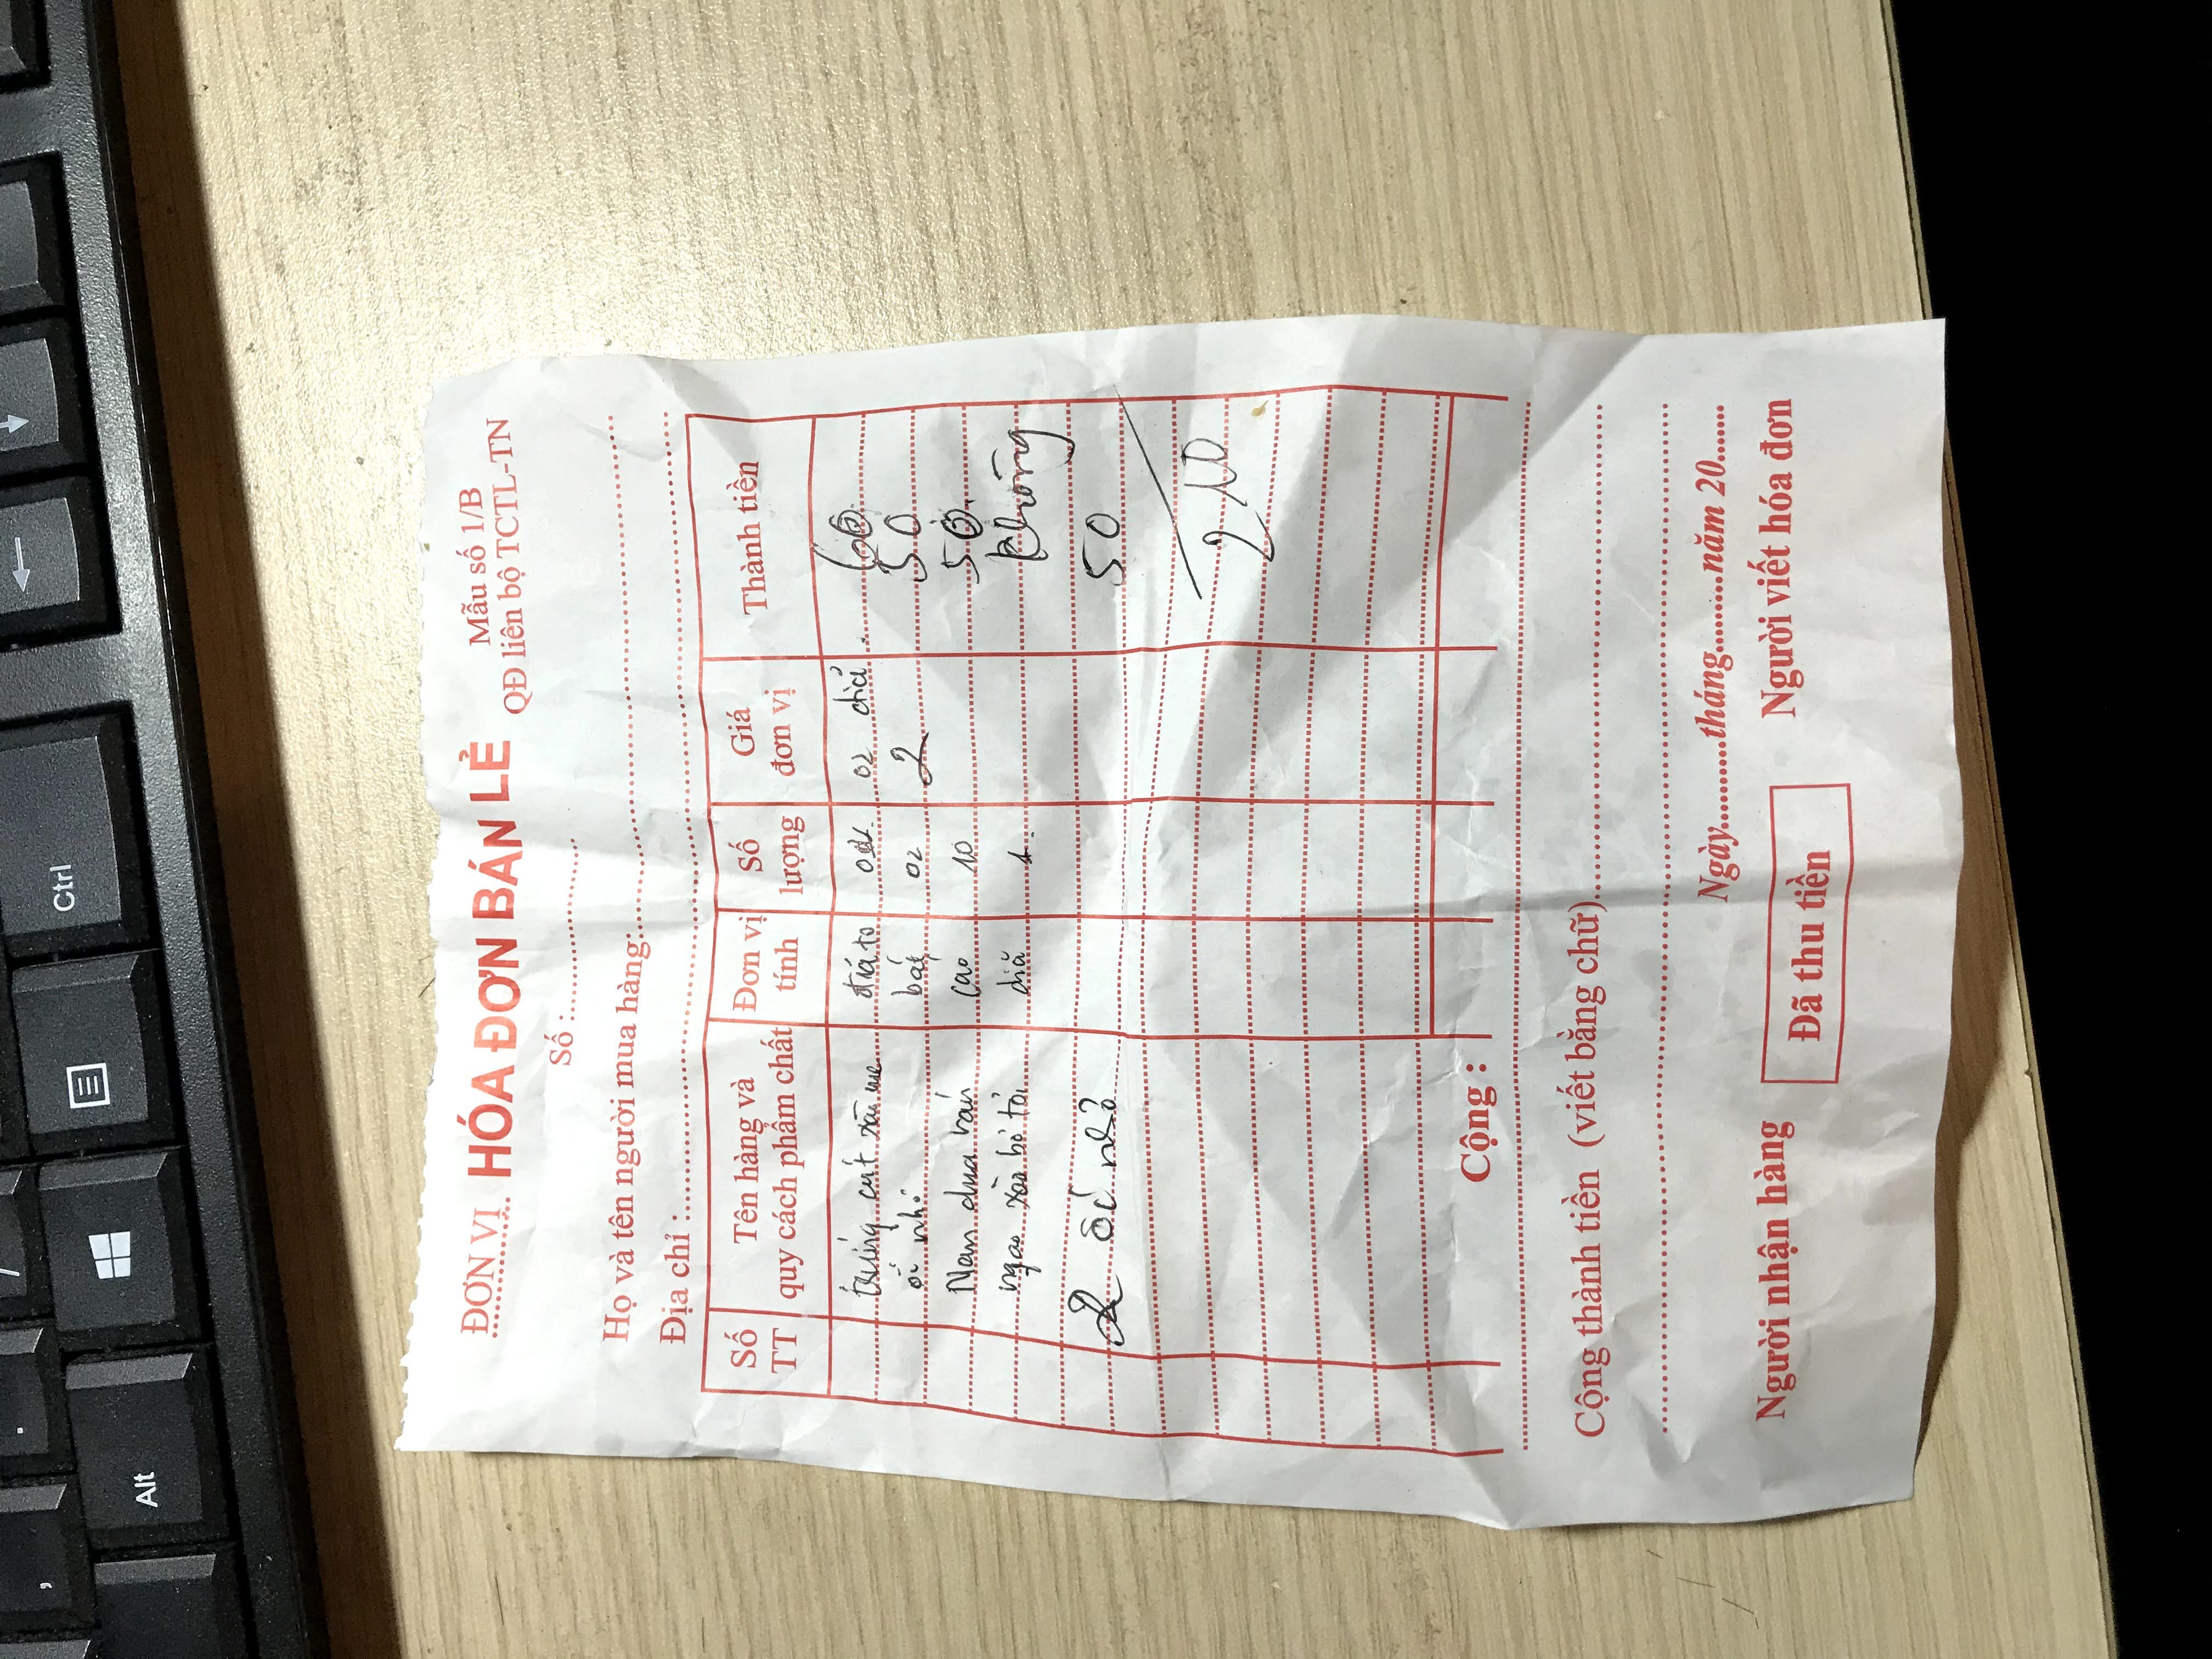 ,
.
/
Alt
Ctrl
ĐƠN VỊ HÓA ĐƠN BÁN LẺ
Mẫu số 1/B
QĐ liên bộ TCTL-TN
Số :
Họ và tên người mua hàng:
Địa chỉ :
Số TT Tên hàng và quy cách phẩm chất Đơn vị tính Số lượng Giá đơn vị Thành tiền
trứng cút xào me đĩa to 02 đĩa 60
ốc nhỏ bát 02 2 50
Nem chua rán cái 10 50
ngao xào bơ tỏi đĩa 1 không
2 ốc nhỏ 50
210
Cộng :
Cộng thành tiền (viết bằng chữ)
Ngày..........tháng.........năm 20.......
Người nhận hàng
Đã thu tiền
Người viết hóa đơn